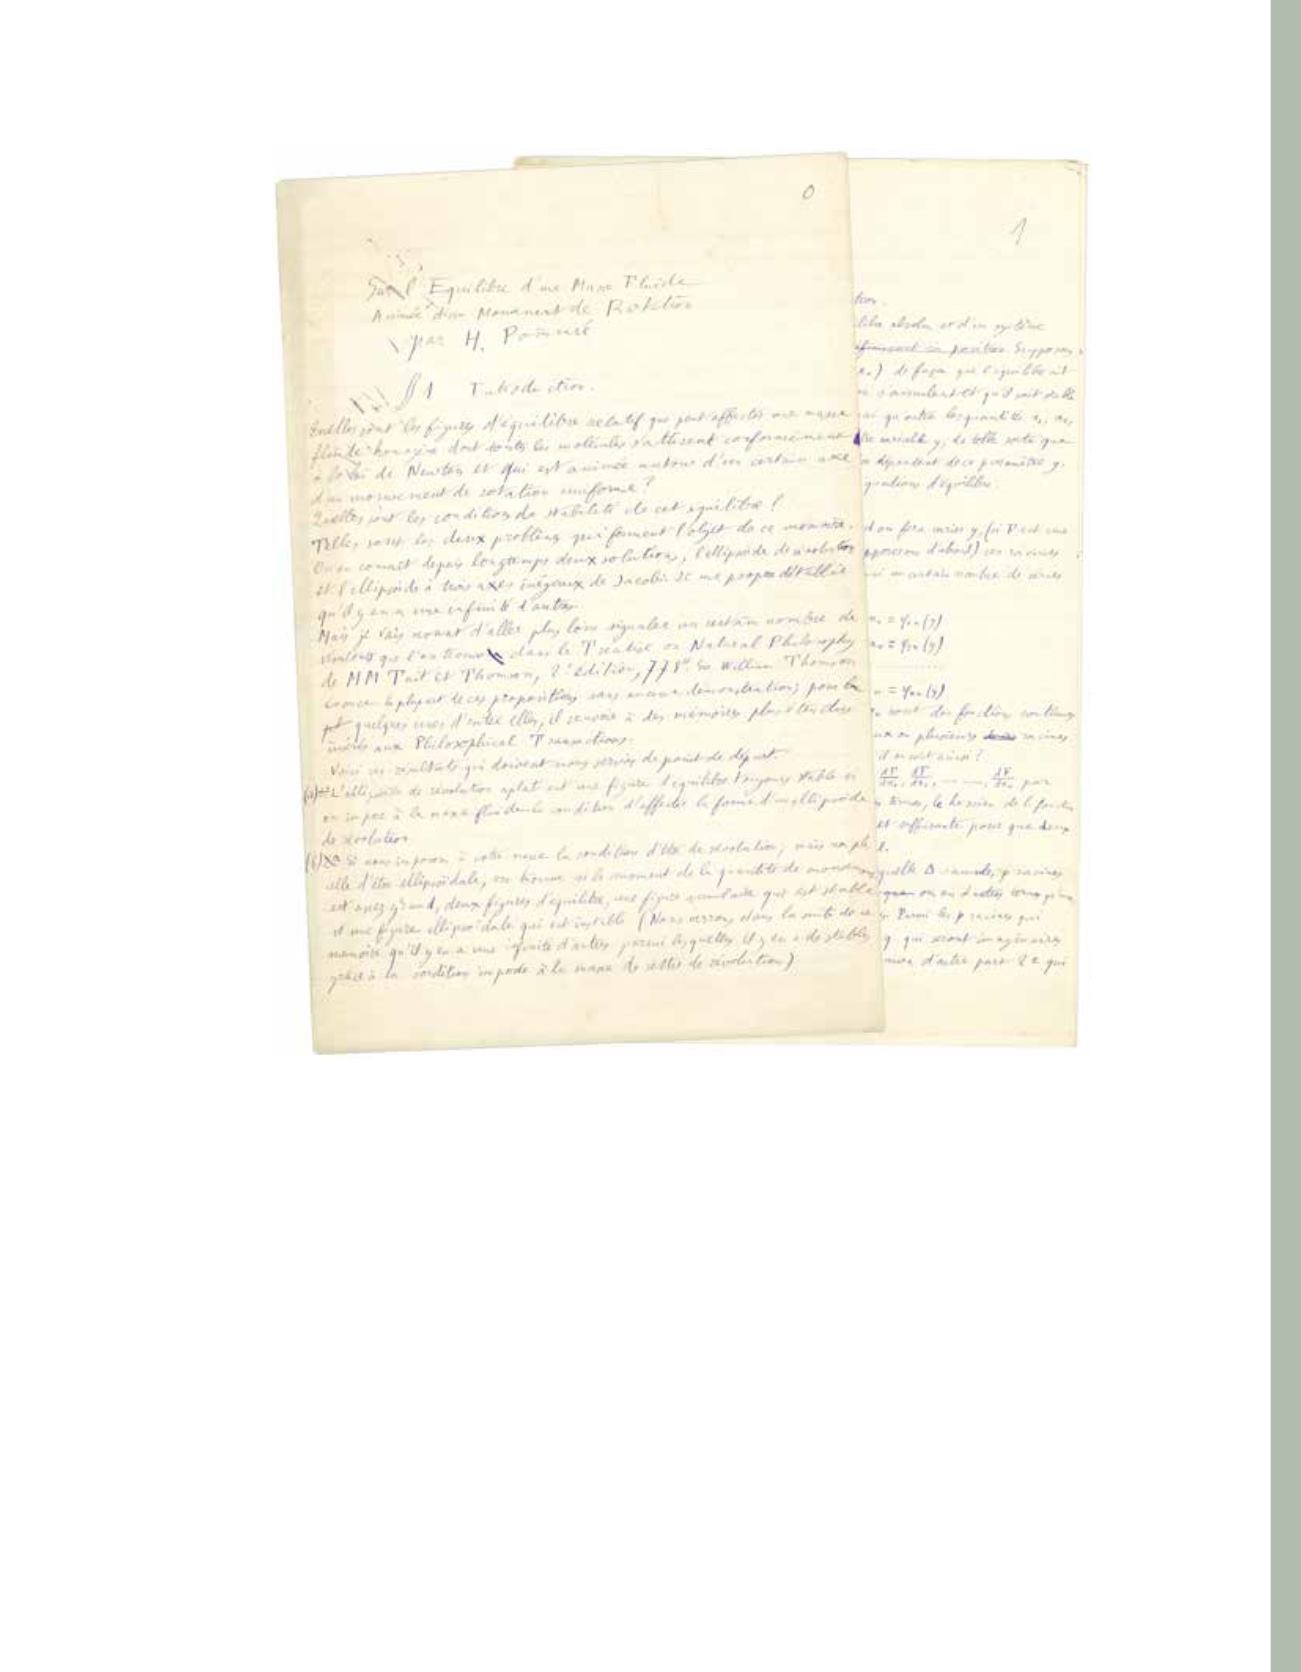 0
Sur l'Equilibre d'une Masse Fluide
Animée d'un Mouvement de Rotation
par H. Poincaré
§ 1 Introduction.
Quelles sont les figures d'équilibre relatif que peut affecter une masse
fluide homogène dont toutes les molécules s'attirent conformément
à la loi de Newton et qui est animée autour d'un certain axe
d'un mouvement de rotation uniforme?
Quelles sont les conditions de stabilité de cet équilibre?
Telles sont les deux problèmes qui forment l'objet de ce mémoire.
On en connait depuis longtemps deux solutions, l'ellipsoïde de révolution
et l'ellipsoïde à trois axes inégaux de Jacobi. Je me propose d'établir
qu'il y en a une infinité d'autres.
Mais je vais avant d'aller plus loin signaler un certain nombre de
résultats que l'on trouve dans le Treatise on Natural Philosophy
de MM Tait et Thomson, 2e édition, 778". Sir William Thomson
énonce la plupart de ces propositions sans aucune démonstration; pour la
quelques unes d'entre elles, il renvoie à des mémoires plus étendus
insérés aux Philosophical Transactions.
Voici les résultats qui doivent nous servir de point de départ.
(a) L'ellipsoïde de révolution aplati est une figure d'équilibre toujours stable si
on impose à la masse fluide la condition d'affecter la forme d'un ellipsoïde
de révolution.
(b) Si nous imposons à notre masse la condition d'être de révolution, mais non plus
celle d'être ellipsoïdale, on trouve si le moment de la quantité de mouvement
est assez grand, deux figures d'équilibre, une figure annulaire qui est stable
et une figure ellipsoïdale qui est instable (Nous verrons dans la suite de ce
mémoire qu'il y en a une infinité d'autres parmi lesquelles il y en a de stables
grâce à la condition imposée à la masse de rester de révolution)
1
libre absolu et d'un système
position Supposons
) de façon que l'équilibre ait
s'annulent et qu'il soit stable
qu'outre les quantités x₁, x₂,
variable y, de telle sorte que
dépendent de ce paramètre y.
équations d'équilibre.
d on fera varier y, (si F est une
supposerons d'abord) ces racines
un certain nombre de séries
= φ (y)
= φ (y)
= φ (y)
sont des fonctions continues
ou plusieurs racines
il en soit ainsi?
par
termes, le hessien de la fonction
et suffisante pour que deux
quelle Δ s'annule, p racines
on en d'autres
Parmi les p racines qui
y qui seront imaginaires
d'autre part 2 q qui